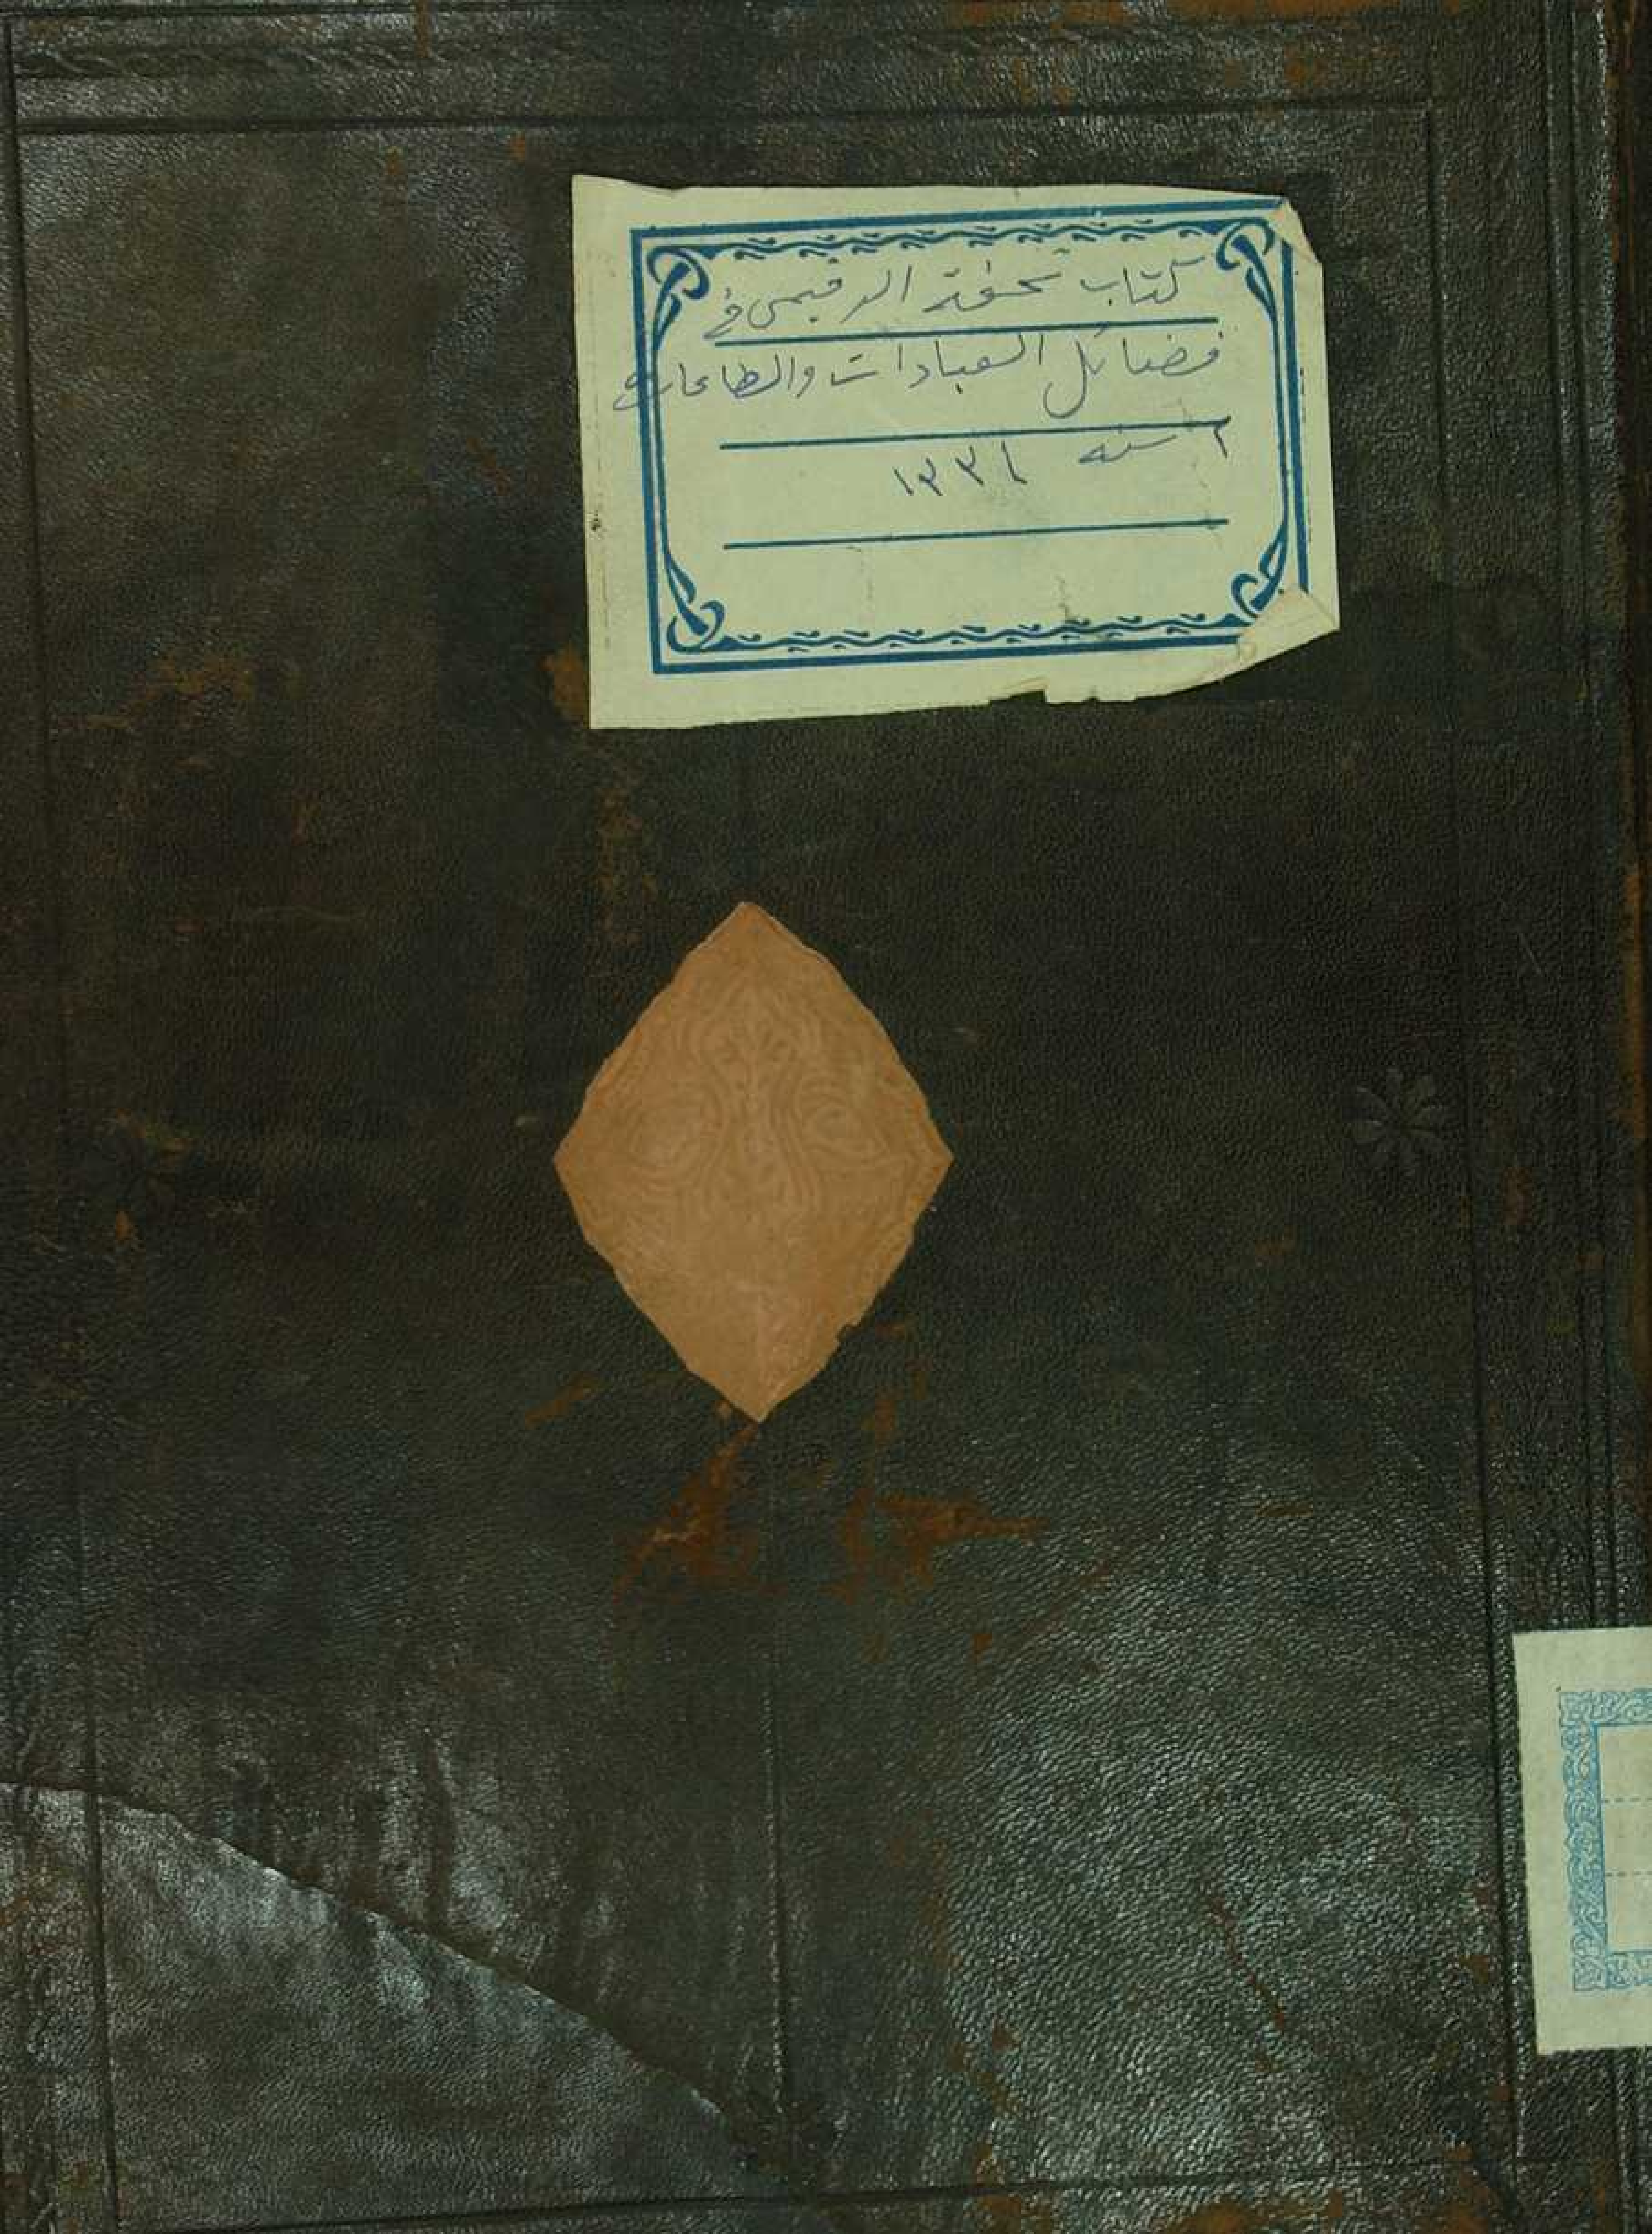 كتاب تحفة الرقيمى فى
فضائل العبادات والطاعات
٢ سنه ١٣٣٤